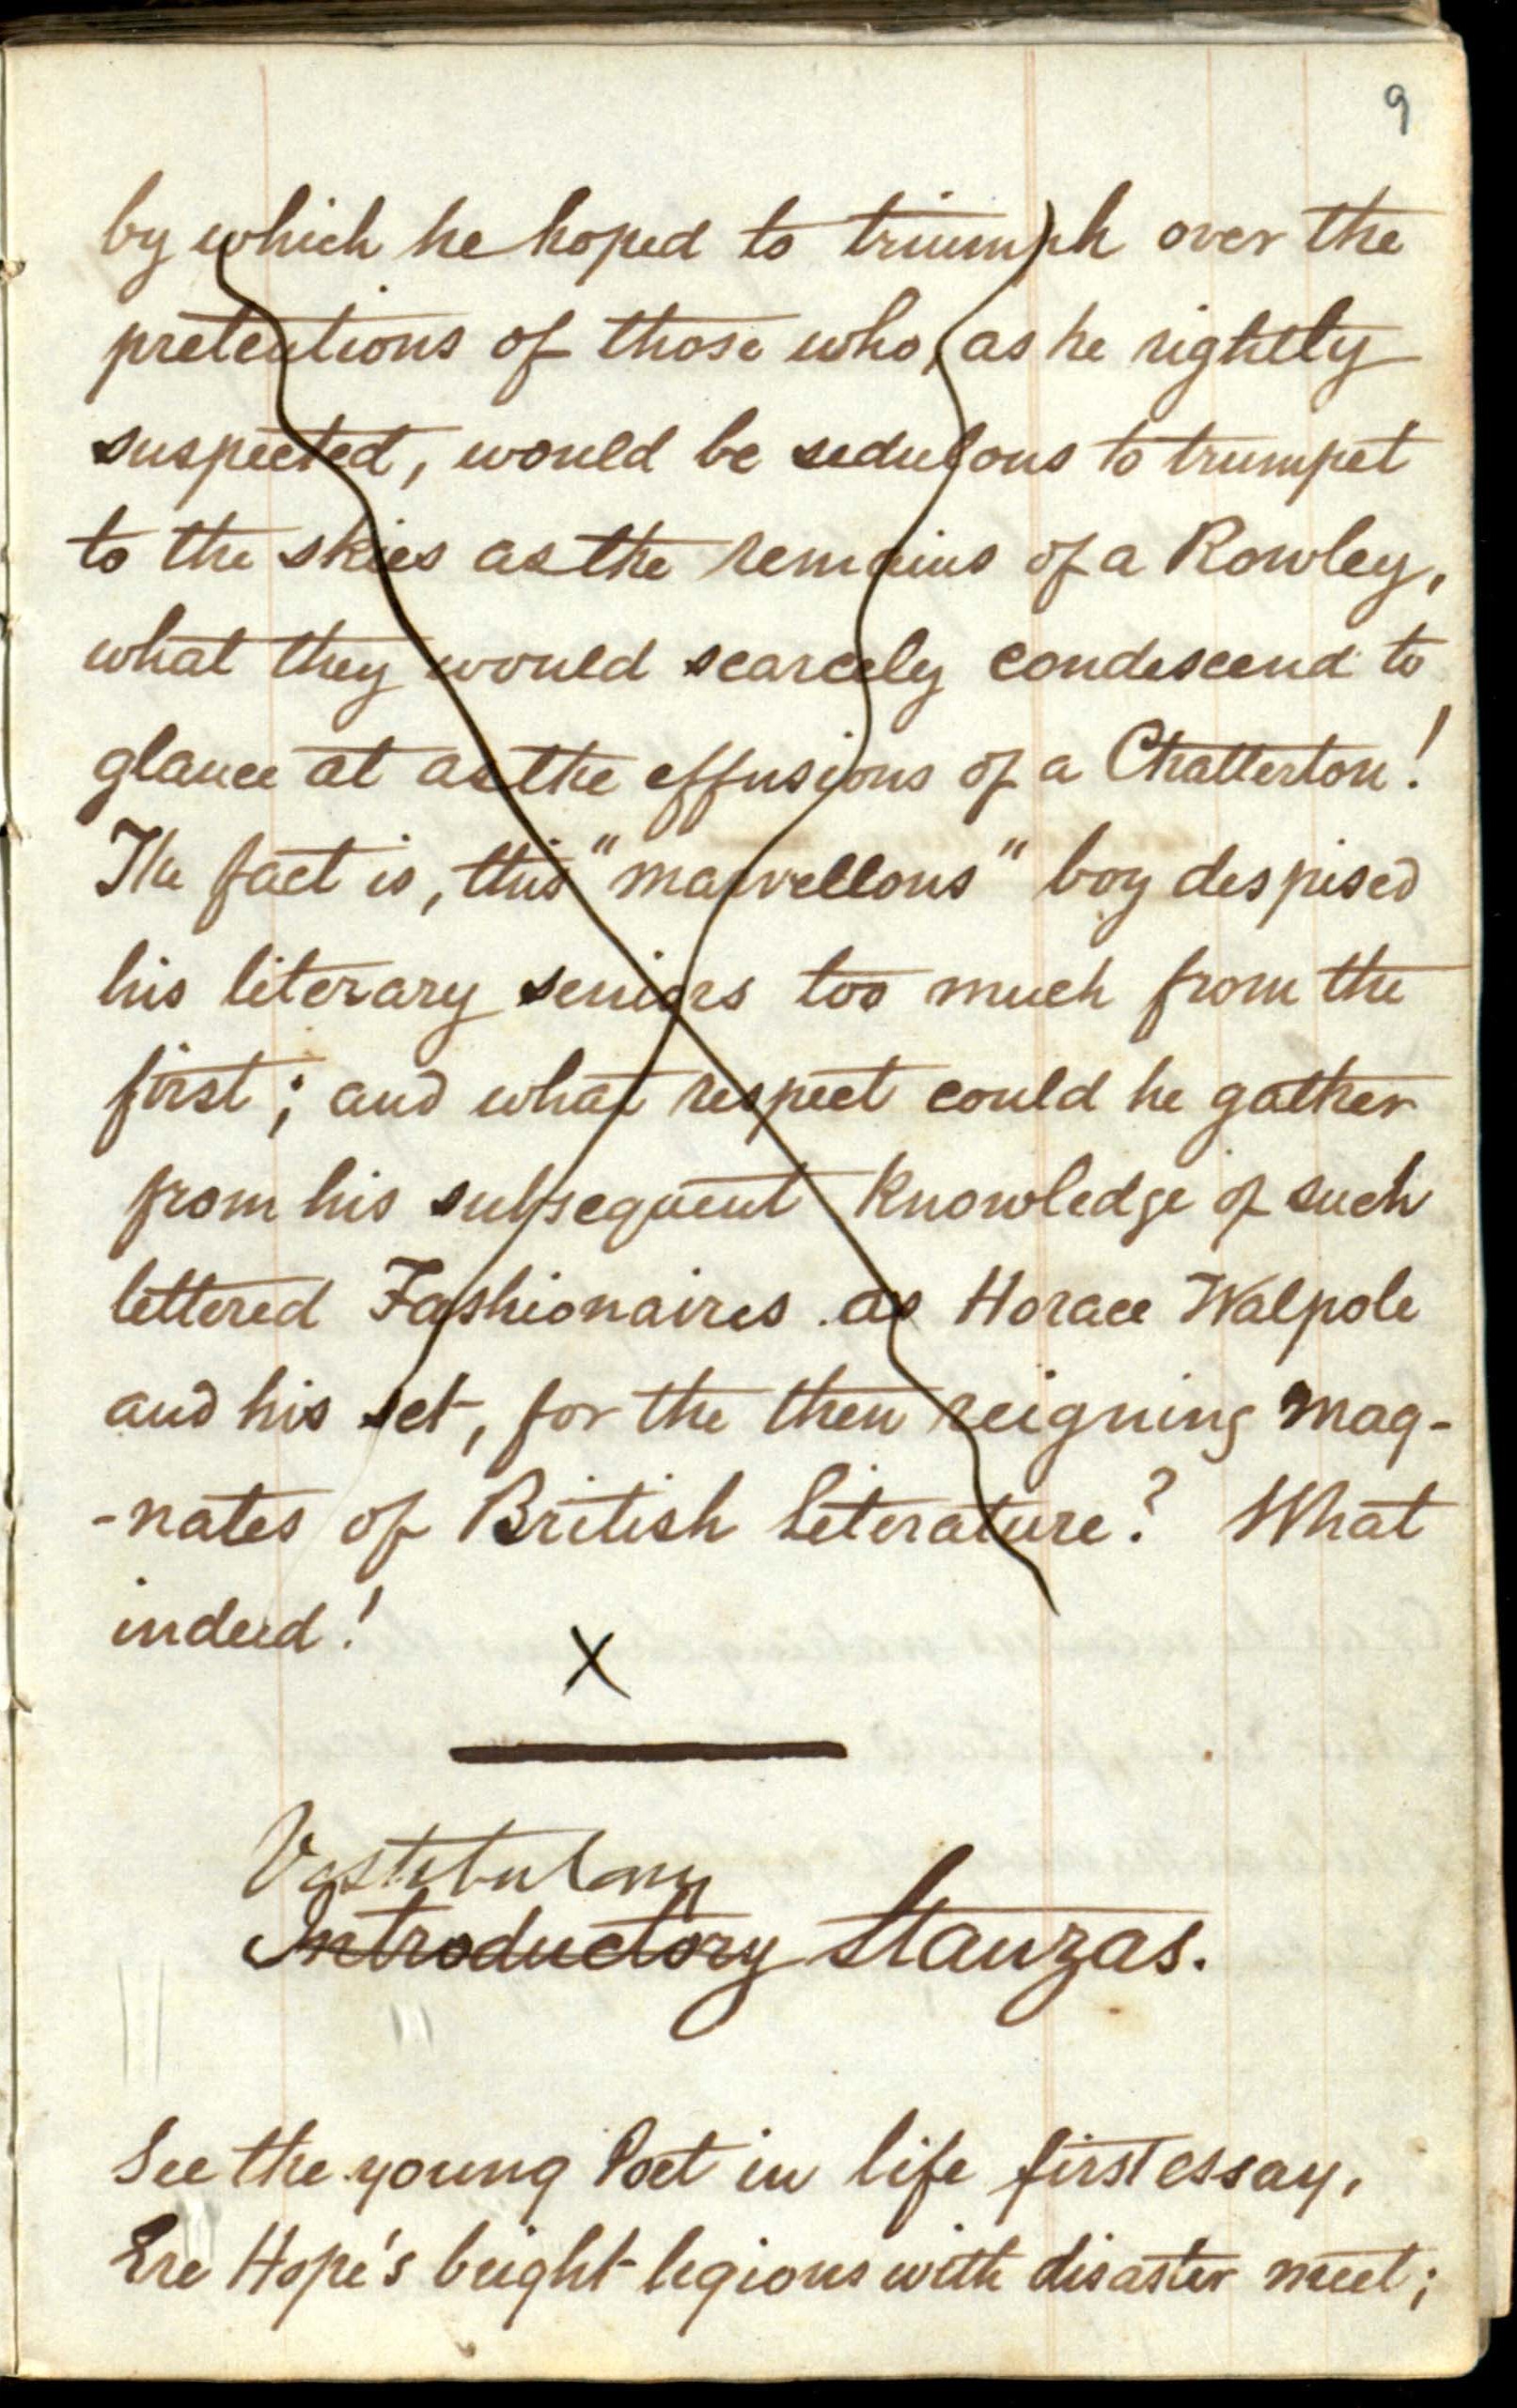 9
by which he hoped to triumph over the
pretentions of those who, as he rightly
suspected, would be sedulous to trumpet
to the skies as the remains of a Rowley,
what they would scarcely condescend to
glance at as the effusions of a Chatterton!
The fact is, this "marvellous" boy despised
his literary seniors too much from the
first; and what respect could he gather
from his subsequent knowledge of such
lettered Fashionaires as Horace Walpole
and his set, for the then reigning mag-
-nates of British Literature? What
indeed!
X
Vestibulary
Introductory Stanzas.
See the young Poet in life first essay,
Ere Hope's bright legions with disaster meet;